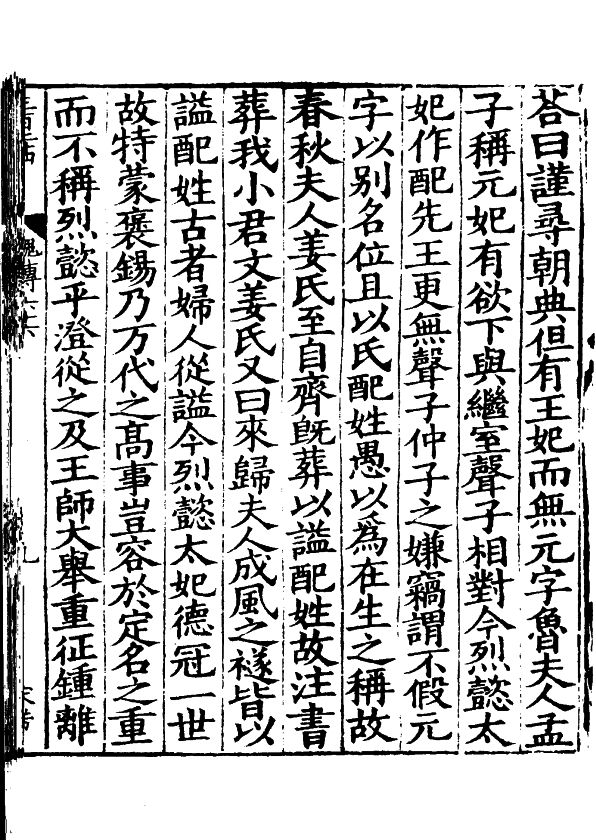 荅曰謹尋朝典但有王妃而無元字魯夫人孟
子稱元妃有欲下與繼室聲子相對今烈懿太
妃作配先王更無聲子仲子之嫌竊謂不假元
字以别名位且以氏配姓愚以爲在生之稱故
春秋夫人姜氏至自齊旣葬以謚配姓故注書
葬我小君文姜氏又曰來歸夫人成風之襚皆以
謚配姓古者婦人從謚今烈懿太妃德冠一世
故特蒙褒錫乃万代之髙事豈容於定名之重
而不稱烈懿乎澄從之及王師大舉重征鍾離